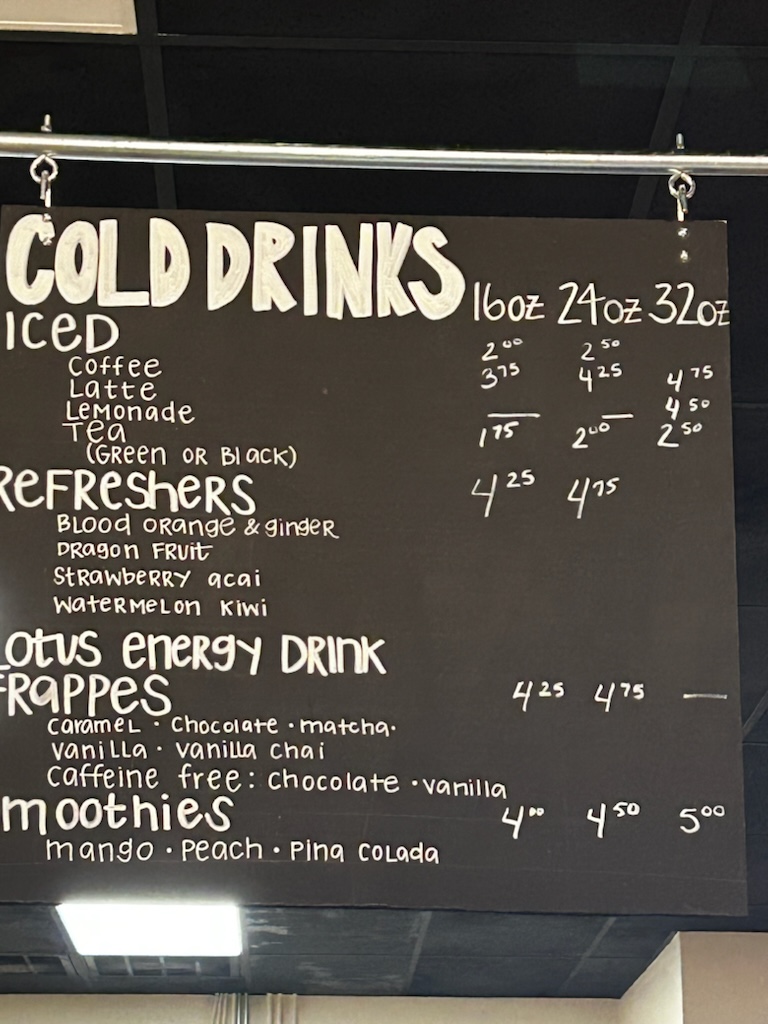 COLD DRINKS 16oz 24oz 32oz
ICED
Coffee 2.00 2.50
Latte 3.75 4.25 4.75
Lemonade — — 4.50
Tea 1.75 2.00 2.50
(Green OR Black)
Refreshers 4.25 4.75
Blood orange & ginger
Dragon Fruit
Strawberry acai
watermelon kiwi
Lotus energy Drink
Frappes 4.25 4.75 —
Caramel · Chocolate · matcha ·
vanilla · vanilla chai
caffeine free: chocolate · vanilla
moothies 4.00 4.50 5.00
mango · Peach · Pina Colada